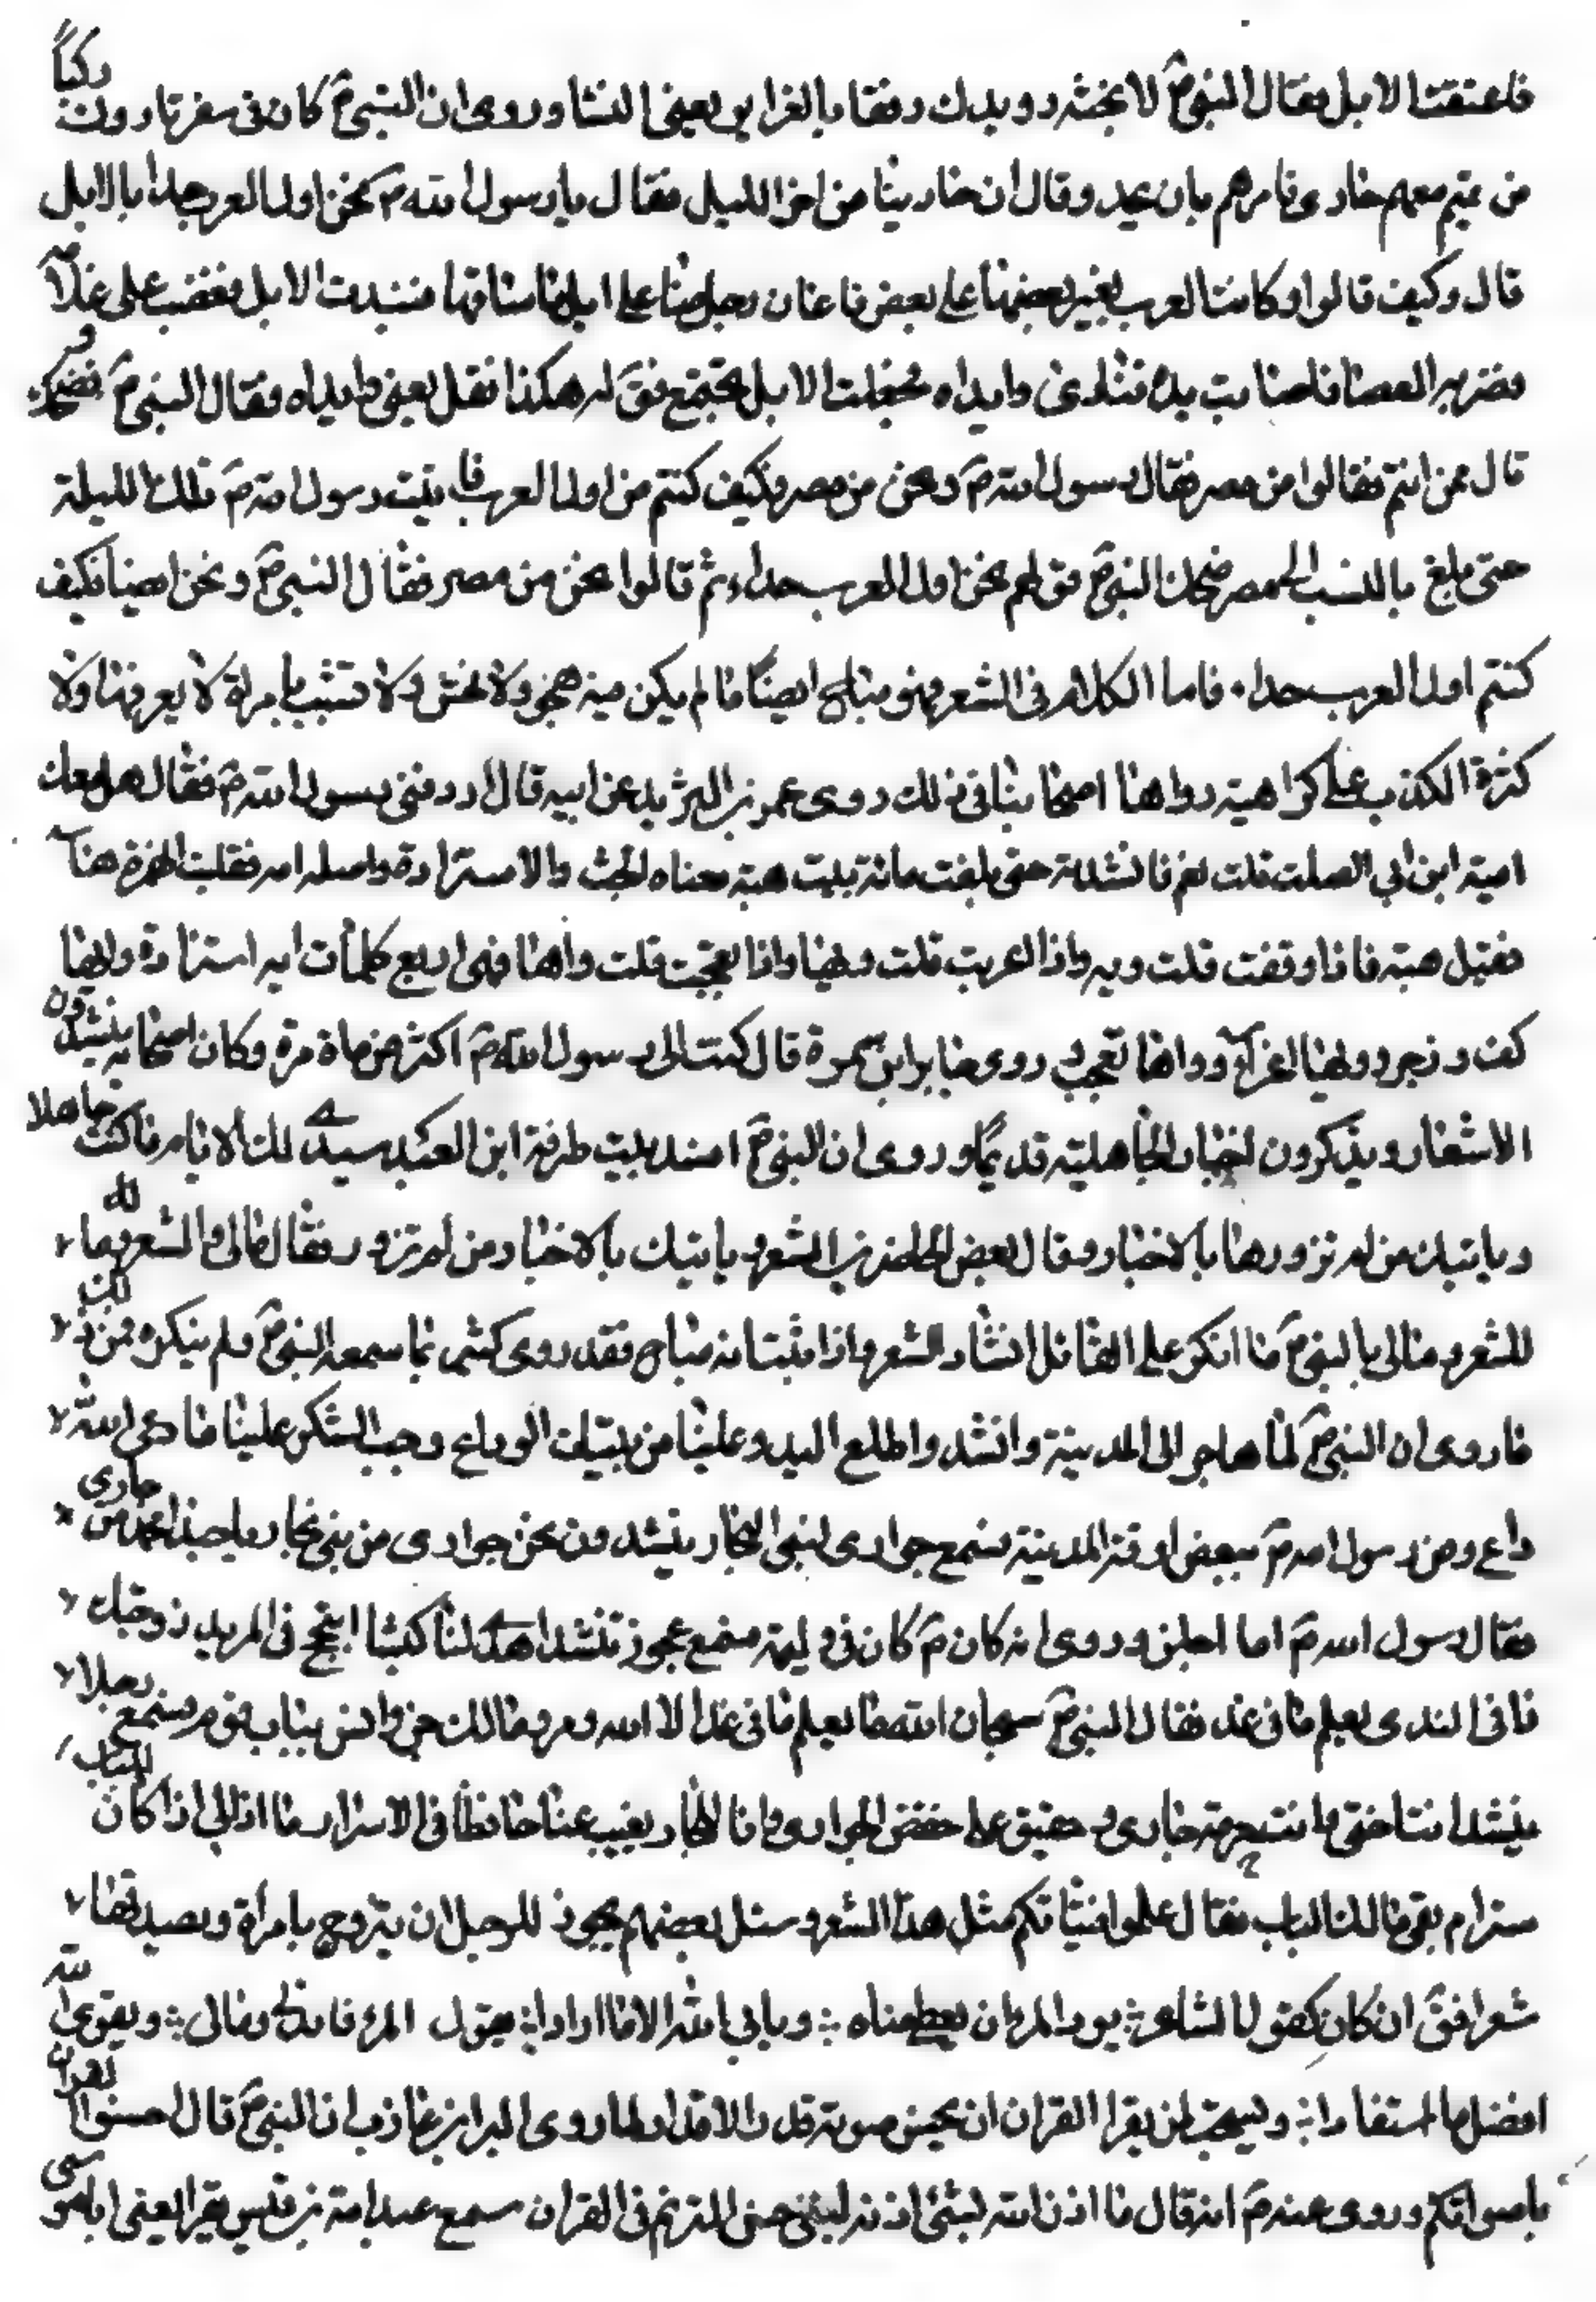 فاعتنقت الابل فقال النبي ص لانجشه رويدك رفقا بالقوارير يعني النسا وروى ان النبي ص كان في سفر فادرك ركبا
من تميم معهم حاد فامرهم بان يحد وقال ان حادينا من اخر الليل فقال يا رسول الله ص نحن اول العرب حداء بالابل
قال وكيف قالوا وكانت العرب يغير بعضها على بعض فاغار رجل منا على ابل فاستاقها فندت الابل فغضب على غلامه
فضربه بالعصا فاصابت يده فنادى وايداه فجعلت الابل تجتمع فق له هكذا فقل يعني وايداه فقال النبي ص فضحك و
قال ممن انتم فقالوا من مضر فقال رسول الله ص ونحن من مضر فكيف كنتم من اول العرب فانتسب رسول الله ص تلك الليلة
حتى بلغ بالنسب الى مضر ضحك النبي ص فق لهم نحن اول العرب حداء ثم قالوا نحن من مضر فقال النبي ص ونحن ايضا فكيف
كنتم اول العرب حداء فاما الكلام في الشعر فهو مباح ايضا ما لم يكن فيه هجو ولا فحش ولا تشبيب بامراة لا يعرفها ولا
كثرة الكذب على كراهية رواها اصحابنا في ذلك روى عمرو بن الشريد عن ابيه قال اردفني رسول الله ص فقال هل معك
امية ابن ابي الصلت قلت نعم فانشدته حتى بلغت مائة بيت هيه معناه الحث والاستزادة واصله ايه فقلبت الهمزة هنا
فقيل هيه فاذا وقفت قلت ويه واذا اغريت قلت ويها واذا تعجبت قلت واها فهي اربع كلمات ايه استزادة وايها
كف وزجر وويها اغراء وواها تعجب روى جابر ابن سمرة قال كنت الى رسول الله ص اكثر من ماة مرة وكان اصحابه ينشدون
الاشعار ويذكرون اخبار الجاهلية قديما وروى ان النبي ص انشد بيت طرفة ابن العبد ستبدى لك الايام ما كنت جاهلا
وياتيك من لم تزورها بالاخبار وقال بعض الحاضرين الشعر وياتيك بالاخبار من لم تزود فقال مالى والشعر وما
للشعر ومالى بالنبي ص ما انكر على القائل انشاد الشعر فاذا ثبت انه مباح فقد روى كثير مما سمعه النبي ص ولم ينكره فمن ذلك
ما روى ان النبي ص لما هاجر الى المدينة وانشد واطلع البدر علينا من ثنيات الوداع وجب الشكر علينا ما دعى لله
داع ومر رسول الله ص ببعض ازقة المدينة فسمع جوارى لبنى النجار ينشدون نحن جوارى من بنى نجار يا حبذا محمد من جارى
فقال رسول الله ص اما وروى انه كان ص كان في وليمة فسمع عجوز تنشد اهدى لنا كبشا في المربد زوجك
فانى الندى يعلم ما في غد فقال النبي ص سبحان الله ما يعلم ما في غدا الا الله ومر مالك بن انس بباب قوم فسمع رجلا
ينشد انت اختى وانت حرمة جارى وحقيق على حفظ الجوارى وانا للجار يغيب عنا حافظا في الاسرار ما ابالى اذا كان للباب
ستر ام بقى مالنا الباب فقال علموا فتياتكم مثل هذا الشعر وسئل بعضهم يجوز للرجل ان يتزوج بامرأة ويصدقها
شعرا فق ان كان كقول الشاعر يود المرء ان يعطى مناه ويابى الله الا ما ارادا يقول المرء فايدتى ومالى وتقوى الله
افضل ما استفادا ويستحب لمن يقرا القران ان يحسن صوته قدر الاقدار لما روى البراء بن عازب ان النبي ص قال حسنوا القران
باصواتكم وروى عنه ص انه قال ما اذن الله لشئ اذنه لنبي حسن الترنم في القران سمع عبد الله بن قيس يقرا يعنى ابا موسى